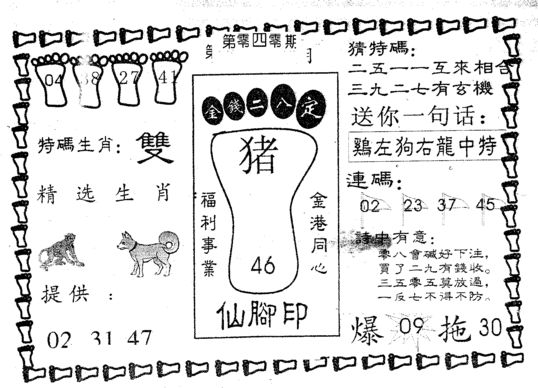 第零四零期
04 38 27 41
特碼生肖：雙
精选生肖
提供：
02 31 47
金錢二八定
猪
46
福利事業
金港同心
仙腳印
猜特碼：
二五一一互來相合
三九二七有玄機
送你一句话：
鷄左狗右龍中特
連碼：
02 23 37 45
詩中有意：
零八會碱好下注，
買了二九有錢收。
三五零五莫放過，
一反七不得不防。
爆 09 拖 30